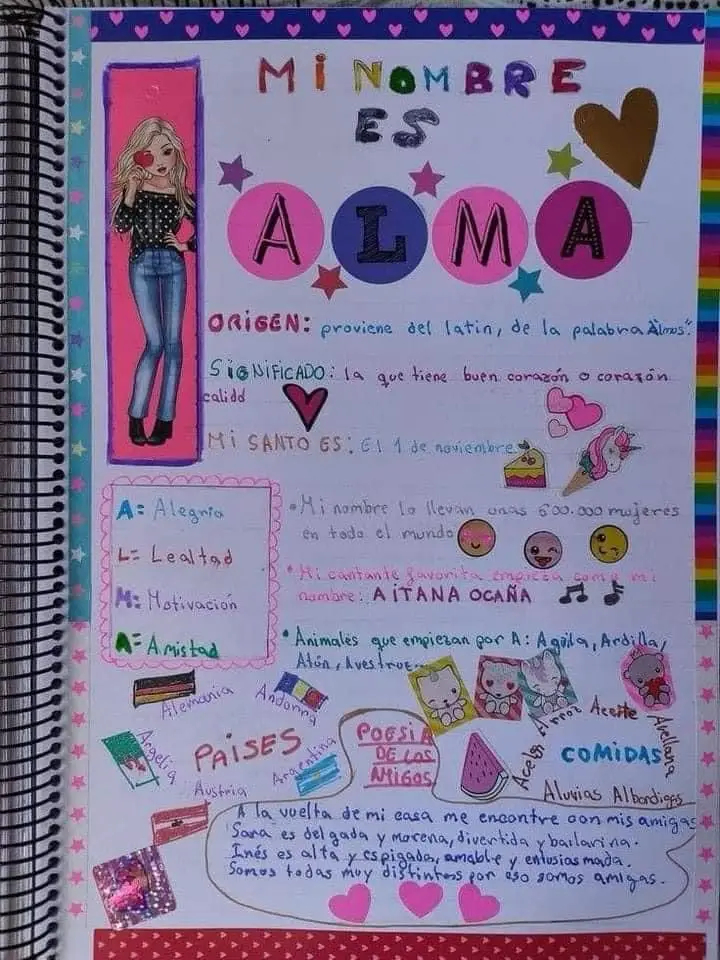 MI NOMBRE
ES
ALMA
ORIGEN: proviene del latin, de la palabra "Almus".
SIGNIFICADO: la que tiene buen corazón o corazón
calidd
MI SANTO ES: El 1 de noviembre
A= Alegria
L= Lealtad
M= Motivación
A= Amistad
• Mi nombre lo llevan unas 600.000 mujeres
en todo el mundo
• Mi cantante favorita empieza como mi
nombre: AITANA OCAÑA
• Animales que empiezan por A: Aguila, Ardilla,
Atún, Avestruz...
Alemania
Andorra
Argelia
PAISES
Argentina
Austria
POESIA
DE LAS
AMIGAS
Acelga
Arroz
Aceite
Avellana
COMIDAS
Aluvias
Albondigas
A la vuelta de mi casa me encontre con mis amigas
Sara es delgada y morena, divertida y bailarina.
Inés es alta y espigada, amable y entusiasmada.
Somos todas muy distintas por eso somos amigas.